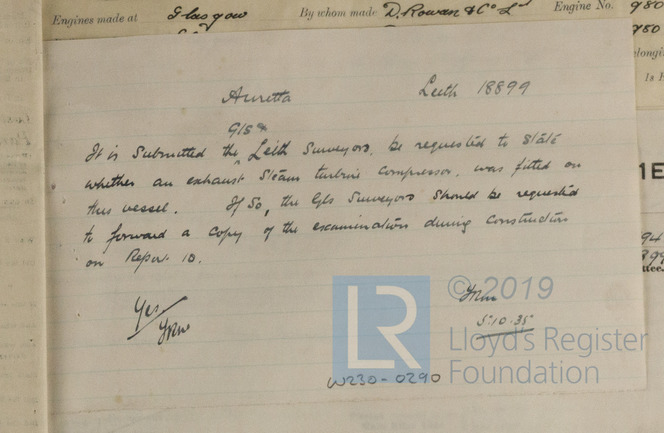 Engines made at Glasgow By whom made D. Rowan & Co Ld Engine No. 980
980
Auretta Leith 18899
It is submitted the Leith Surveyors, be requested to state
whether an exhaust steam turbine compressor, was fitted on
this vessel. If so, the Gls Surveyors should be requested
to forward a copy of the examination during construction
on Report 10.
Yes
5.10.35
W230-0290
LR
© 2019
Lloyd's Register
Foundation